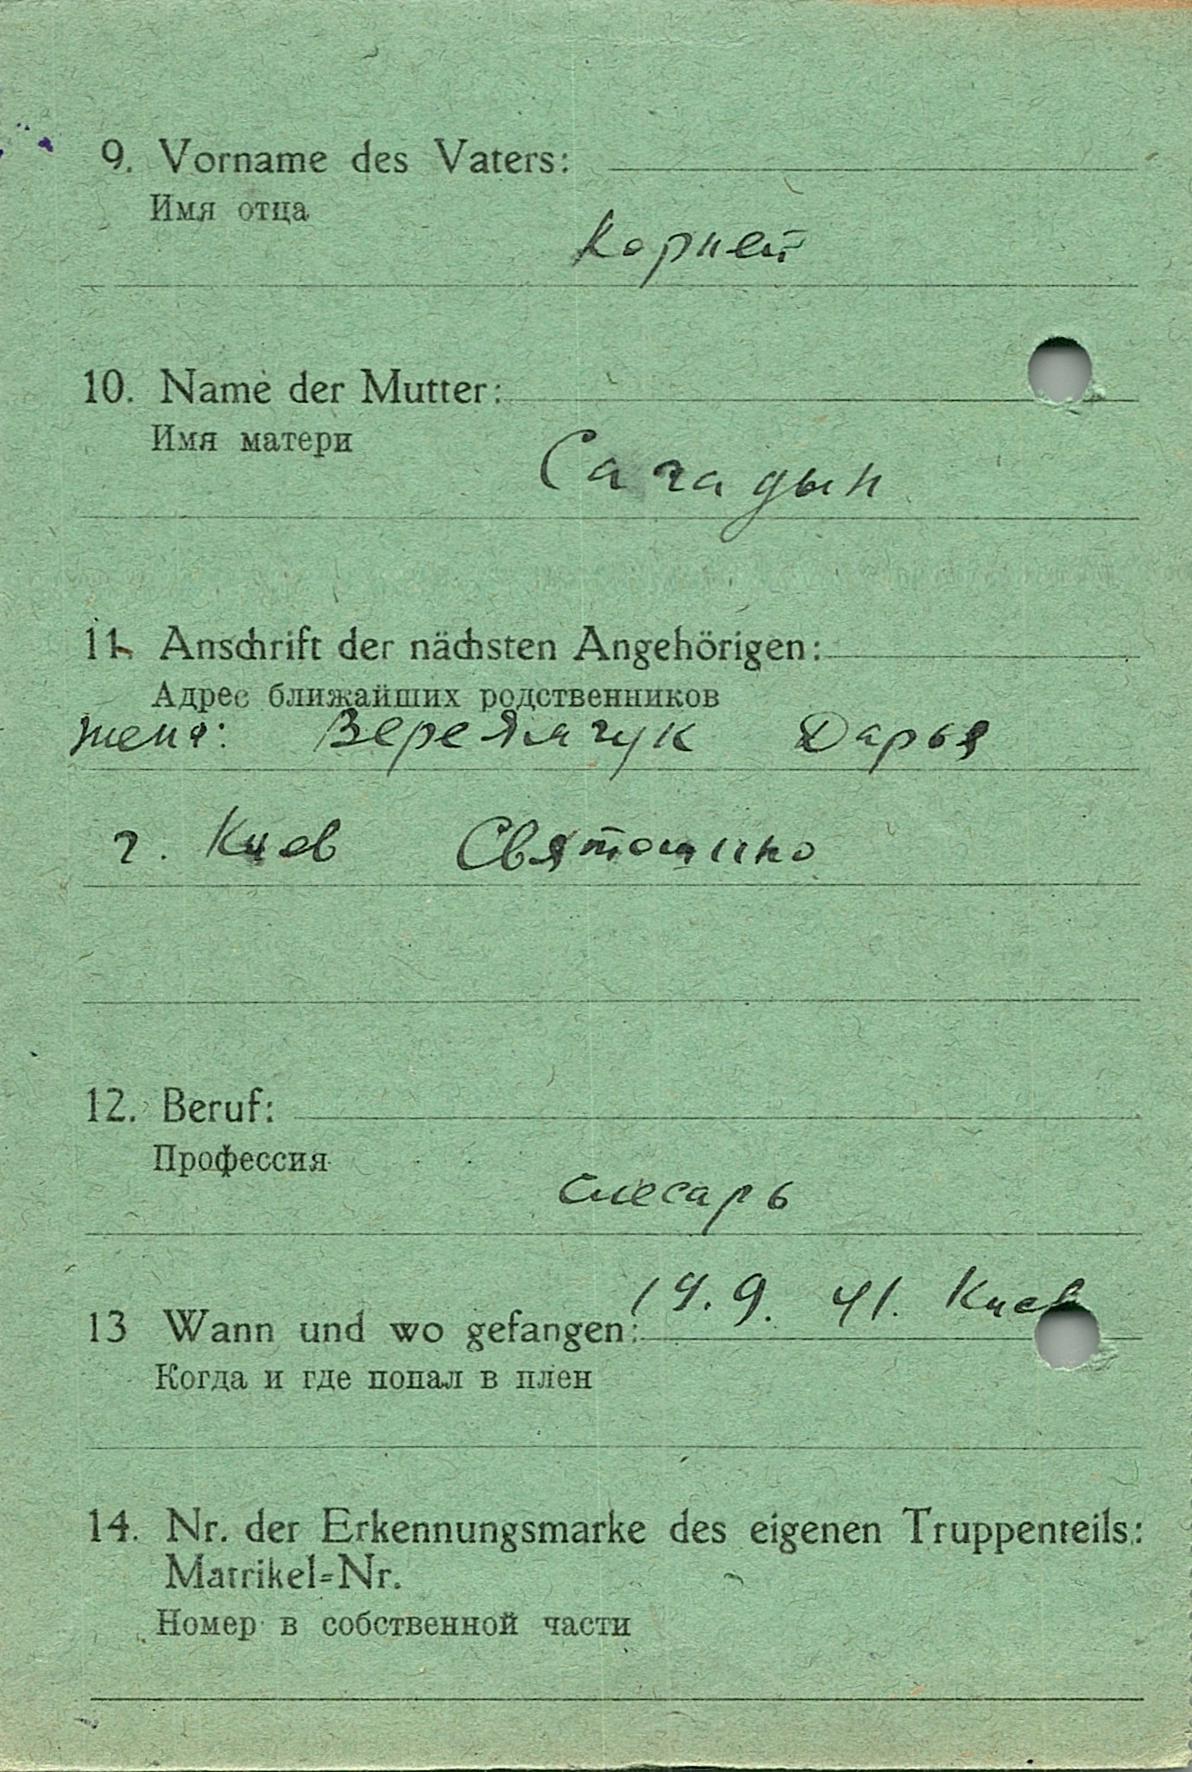 9. Vorname des Vaters:
Имя отца
Корней
10. Name der Mutter:
Имя матери
Сагадын
11. Anschrift der nächsten Angehörigen:
Адрес ближайших родственников
жена: Веремчук Дарья
г. Киев Святошино
12. Beruf:
Профессия
слесарь
13 Wann und wo gefangen: 19. 9. 41. Киев
Когда и где попал в плен
14. Nr. der Erkennungsmarke des eigenen Truppenteils:
Matrikel=Nr.
Номер в собственной части